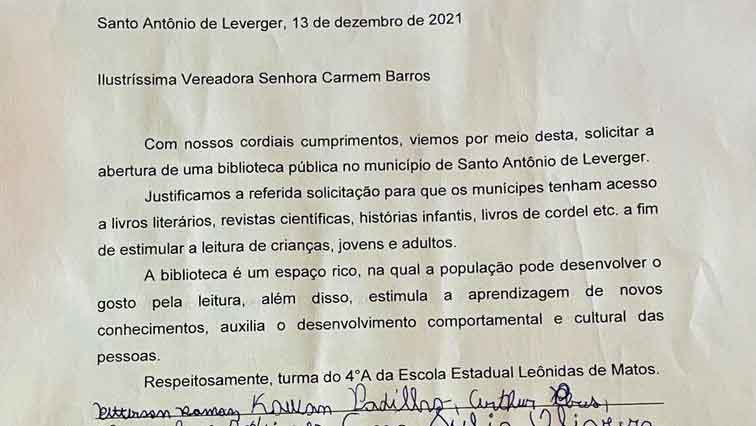 Santo Antônio de Leverger, 13 de dezembro de 2021
Ilustríssima Vereadora Senhora Carmem Barros
Com nossos cordiais cumprimentos, viemos por meio desta, solicitar a
abertura de uma biblioteca pública no município de Santo Antônio de Leverger.
Justificamos a referida solicitação para que os munícipes tenham acesso
a livros literários, revistas científicas, histórias infantis, livros de cordel etc. a fim
de estimular a leitura de crianças, jovens e adultos.
A biblioteca é um espaço rico, na qual a população pode desenvolver o
gosto pela leitura, além disso, estimula a aprendizagem de novos
conhecimentos, auxilia o desenvolvimento comportamental e cultural das
pessoas.
Respeitosamente, turma do 4°A da Escola Estadual Leônidas de Matos.
Kauan Padilha, Arthur